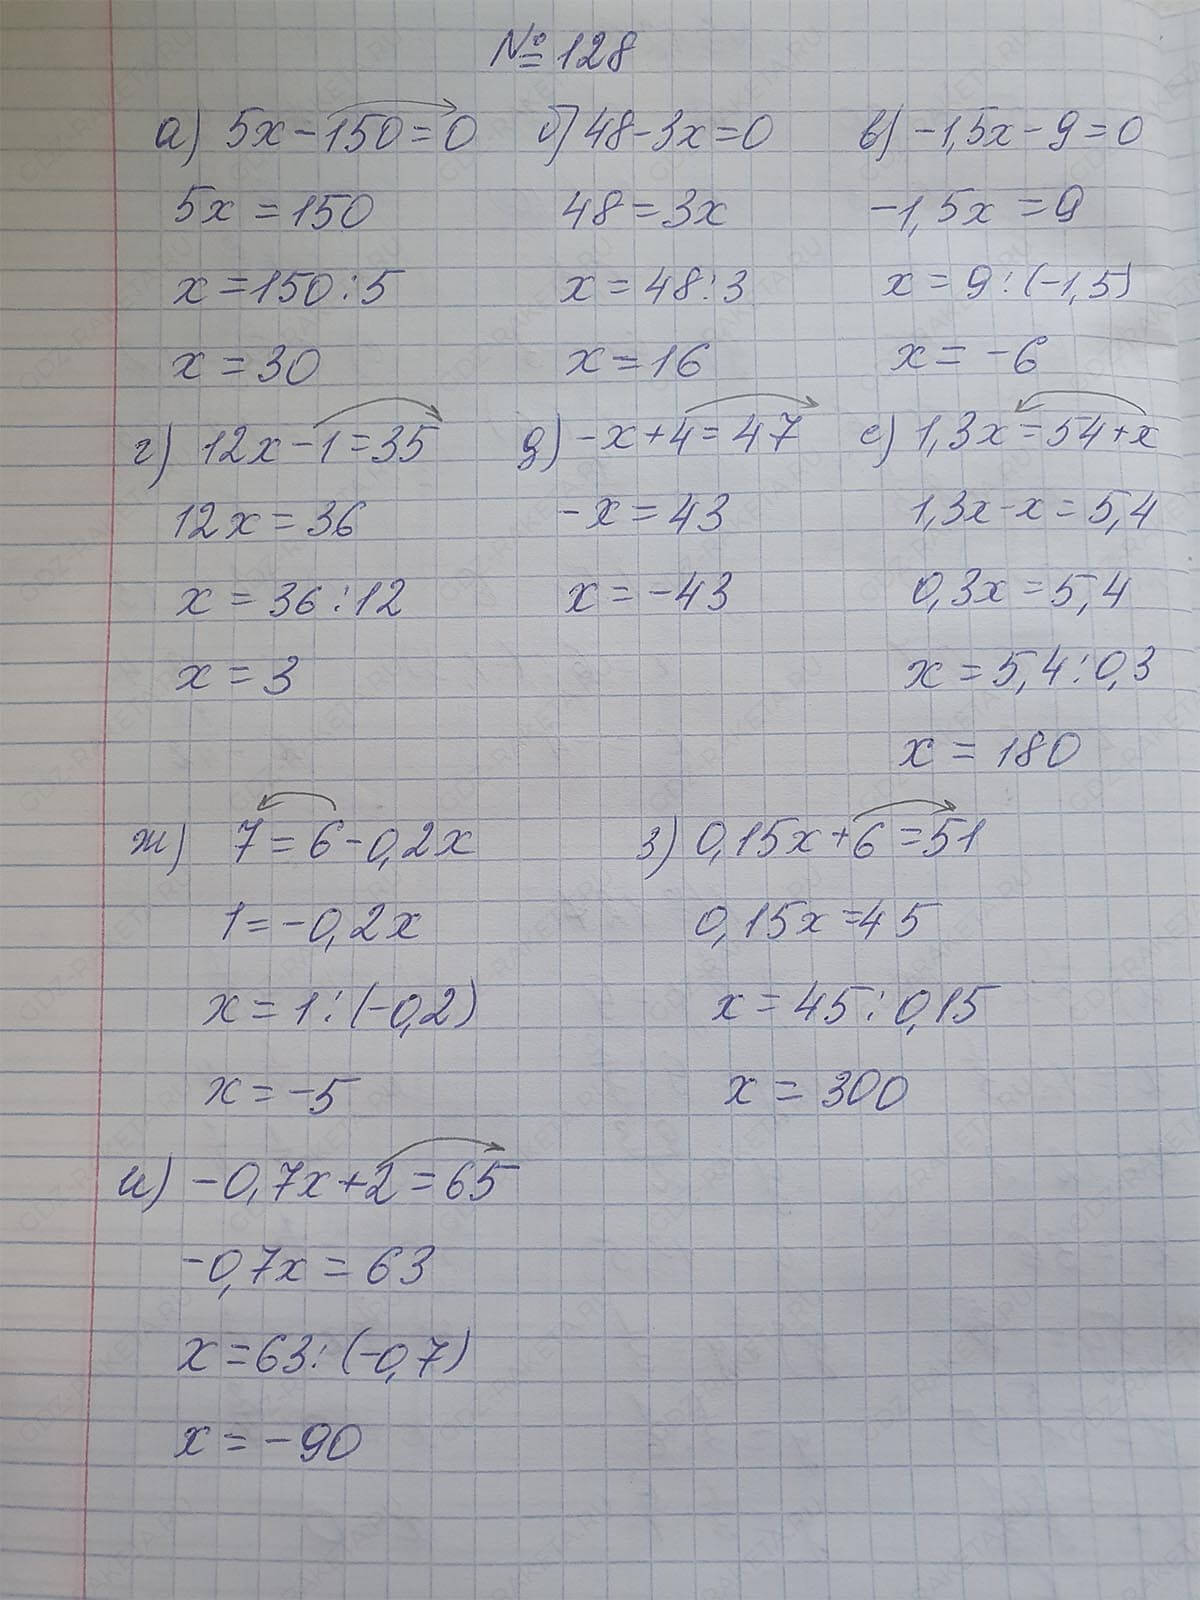 № 128
а) 5x - 150 = 0
5x = 150
x = 150 : 5
x = 30
б) 48 - 3x = 0
48 = 3x
x = 48 : 3
x = 16
в) -1,5x - 9 = 0
-1,5x = 9
x = 9 : (-1,5)
x = -6
г) 12x - 1 = 35
12x = 36
x = 36 : 12
x = 3
д) -x + 4 = 47
-x = 43
x = -43
е) 1,3x = 54 + x
1,3x - x = 5,4
0,3x = 5,4
x = 5,4 : 0,3
x = 180
ж) 7 = 6 - 0,2x
1 = -0,2x
x = 1 : (-0,2)
x = -5
з) 0,15x + 6 = 51
0,15x = 45
x = 45 : 0,15
x = 300
и) -0,7x + 2 = 65
-0,7x = 63
x = 63 : (-0,7)
x = -90